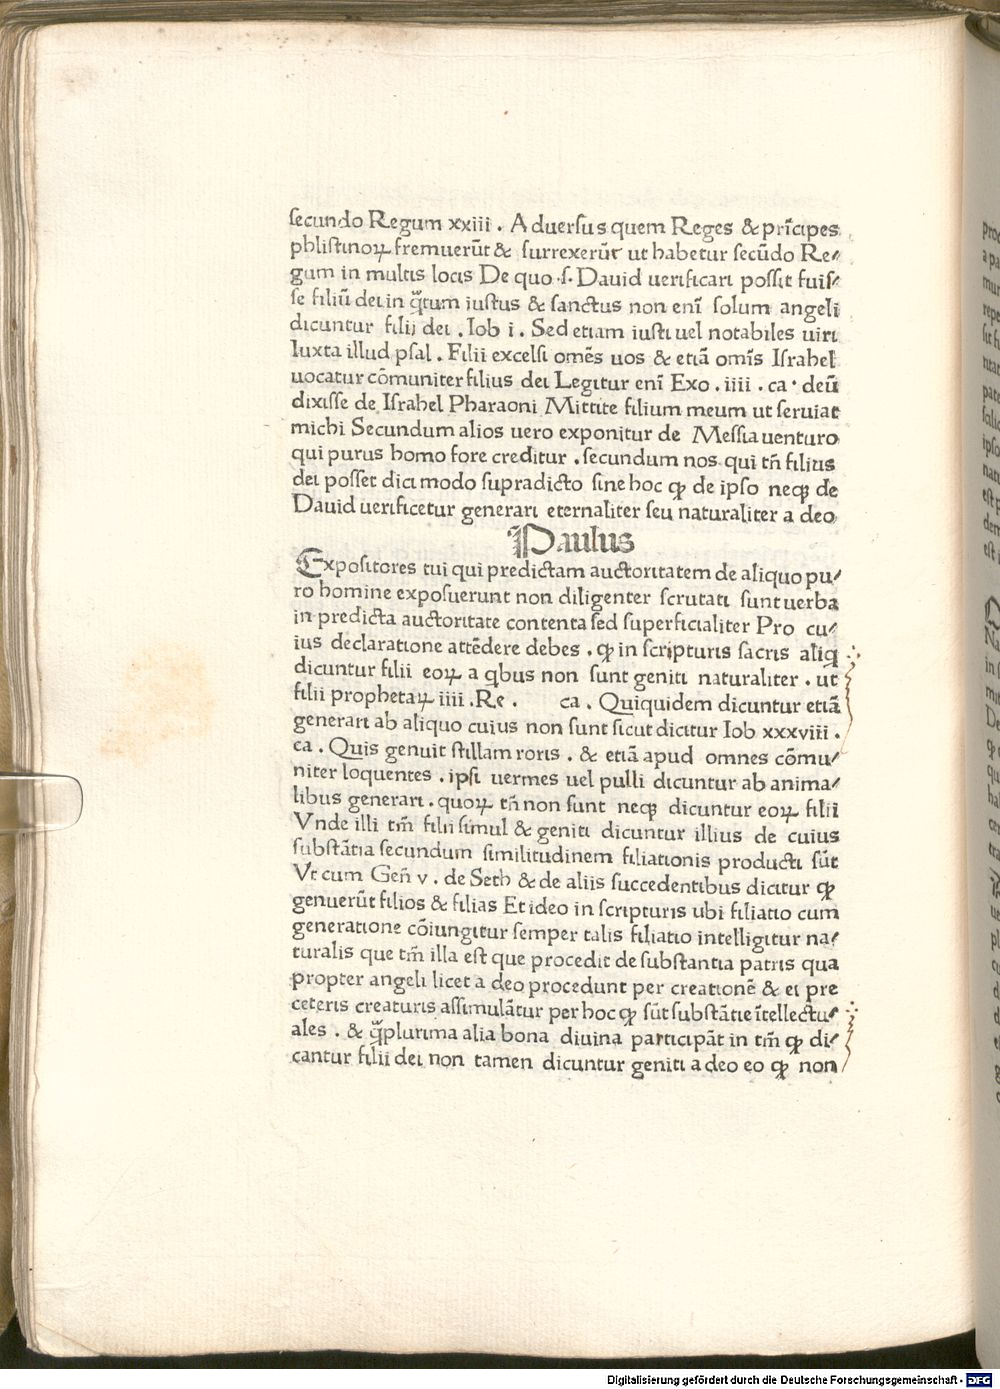 secundo Regum xxiii . Aduersus quem Reges & prīcipes
phlistinoꝝ fremuerūt & surrexerūt ut habetur secūdo Re⸗
gum in multis locis De quo .s. Dauid uerificari possit fuis⸗
se filiū dei in q̄tum iustus & sanctus non enī solum angeli
dicuntur filii dei . Iob i . Sed etiam iusti uel notabiles uiri
Iuxta illud psal . Filii excelsi omēs uos & etiā omīs Israhel
uocatur cōmuniter filius dei Legitur enī Exo . iiii . ca . deū
dixisse de Israhel Pharaoni Mittite filium meum ut seruiat
michi Secundum alios uero exponitur de Messia uenturo
qui purus homo fore creditur . secundum nos qui tn̄ filius
dei posset dici modo supradicto sine hoc ꝙ de ipso neqꝫ de
Dauid uerificetur generari eternaliter seu naturaliter a deo
Paulus
Expositores tui qui predictam auctoritatem de aliquo pu⸗
ro homine exposuerunt non diligenter scrutati sunt uerba
in predicta auctoritate contenta sed superficialiter Pro cu⸗
ius declaratione attēdere debes . ꝙ in scripturis sacris aliq
dicuntur filii eoꝝ a qbus non sunt geniti naturaliter . ut
filii prophetaꝝ iiii . Re . ca . Quiquidem dicuntur etiā
generari ab aliquo cuius non sunt sicut dicitur Iob xxxviii .
ca . Quis genuit stillam roris . & etiā apud omnes cōmu⸗
niter loquentes . ipsi uermes uel pulli dicuntur ab anima⸗
libus generari . quoꝝ tn̄ non sunt neqꝫ dicuntur eoꝝ filii
Vnde illi tm̄ filii simul & geniti dicuntur illius de cuius
substātia secundum similitudinem filiationis producti sūt
Vt cum Gen̄ v . de Seth & de aliis succedentibus dicitur ꝙ
genuerūt filios & filias Et ideo in scripturis ubi filiatio cum
generatione cōiungitur semper talis filiatio intelligitur na⸗
turalis que tm̄ illa est que procedit de substantia patris qua
propter angeli licet a deo procedunt per creationē & ei pre
ceteris creaturis assimulātur per hoc ꝙ sūt substātie ītellectu⸗
ales . & q̄plurima alia bona diuina participāt in tm̄ ꝙ di⸗
cantur filii dei non tamen dicuntur geniti a deo eo ꝙ non
Digitalisierung gefördert durch die Deutsche Forschungsgemeinschaft - DFG